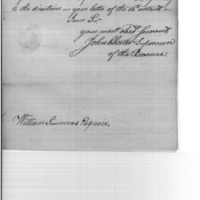 to the directions in your letter of the 13th instant.
I am Sir,
your most obed servant
John Chester Supervisor
of the Revenue
William Simmons Esquire,